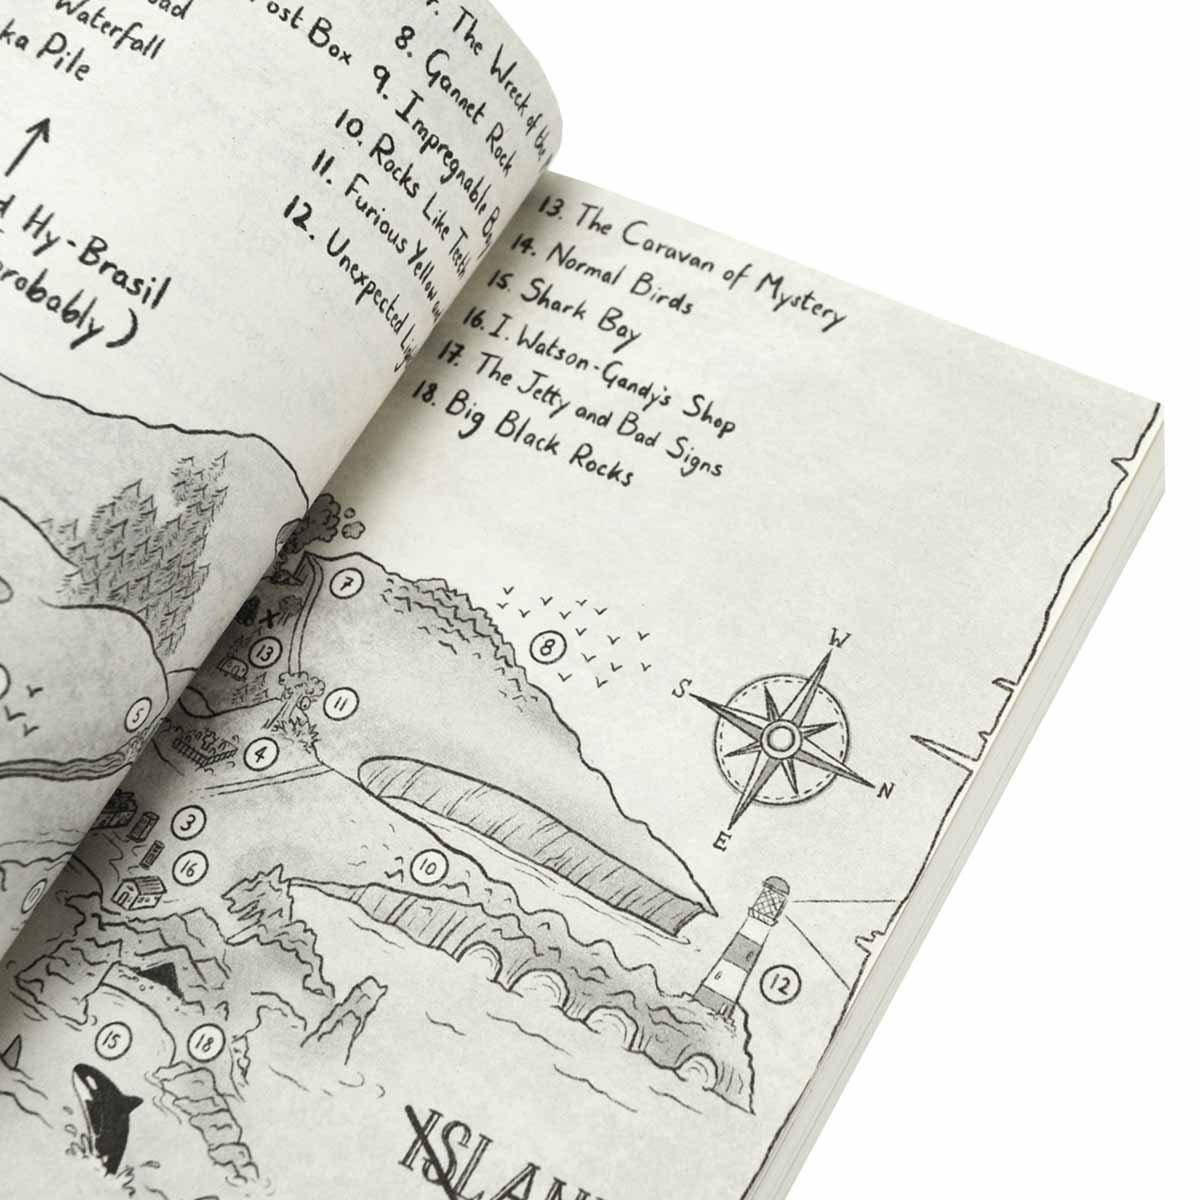 Waterfall
Pile
Post Box
↑
Hy-Brasil
probably)
The Wreck of the
8. Gannet Rock
9. Impregnable
10. Rocks Like Teeth
11. Furious Yellow
12. Unexpected
13. The Caravan of Mystery
14. Normal Birds
15. Shark Bay
16. I. Watson-Gandy's Shop
17. The Jetty and Bad Signs
18. Big Black Rocks
7
8
X
13
11
5
4
3
16
10
12
15
18
W
S
N
E
ISLAN